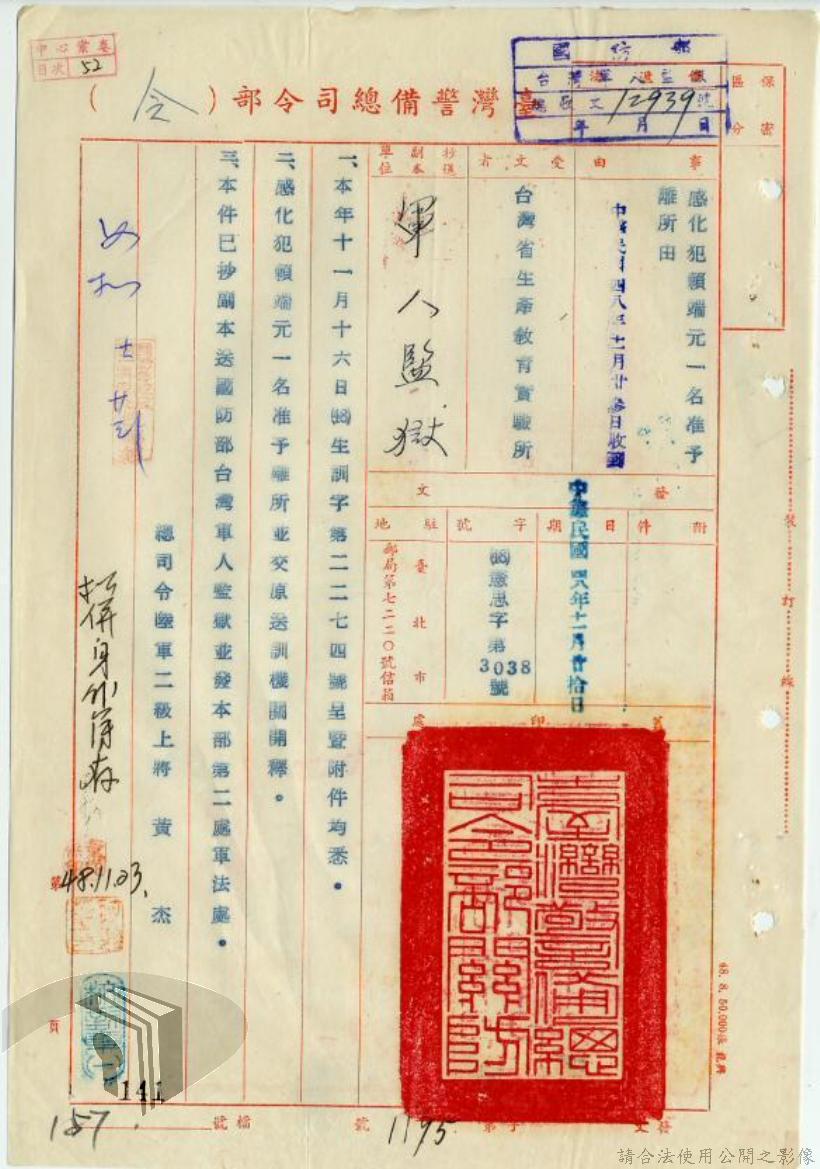 中心案卷
目次 52
國防部
台灣軍人監獄
12939號
年月日
保密
區分
臺灣警備總司令部（令）
事由
感化犯賴端元一名准予
離所由
中華民國四八年十一月廿叁日收
受文者
台灣省生產教育實驗所
抄送
副本
單位
軍人監獄
發文
附件
日期
中華民國四八年十一月廿拾日
字號
(48)憲思字第
3038
號
駐地
臺北市
郵局第七二二〇號信箱
蓋印處
臺灣警備總
司令部關防
一、本年十一月十六日(48)生訓字第二二七四號呈暨附件均悉。
二、感化犯賴端元一名准予離所並交原送訓機關開釋。
三、本件已抄副本送國防部台灣軍人監獄並發本部第二處軍法處。
總司令陸軍二級上將黃杰
48.11.23.
第
頁
141
裝訂線
48. 8. 50,000張
發文字第1195號
檔號
157
請合法使用公開之影像